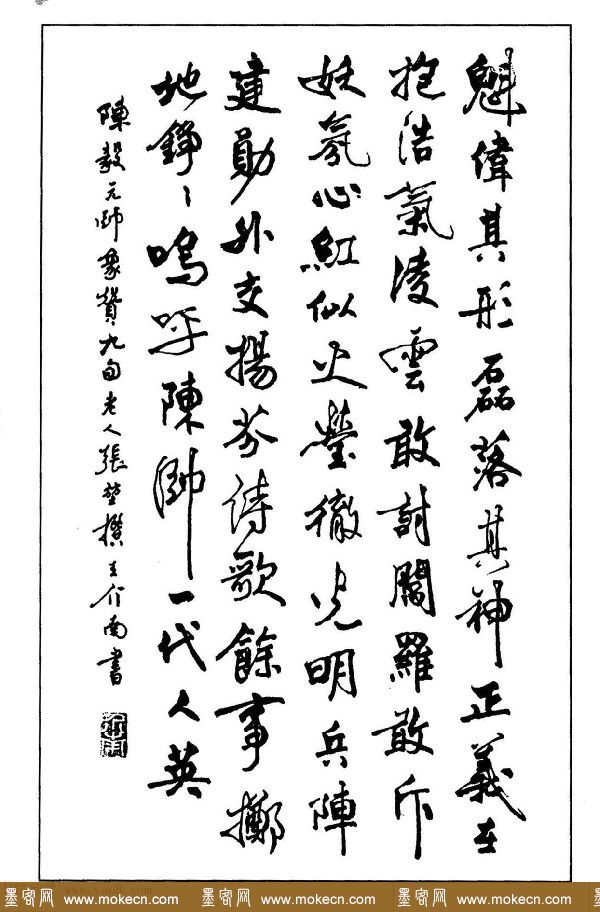 魁偉其形磊落其神正義在
抱浩氣凌雲敢討閻羅敢斥
妖氛心紅似火瑩徹光明兵陣
建勛外交揚芬詩歌餘事擲
地錚〻嗚呼陳帥一代人英
陳毅元帥象贊九旬老人張楚撰王介南書
介南
墨客网 www.mokecn.com 墨客网 www.mokecn.com 墨客网 www.mokecn.com